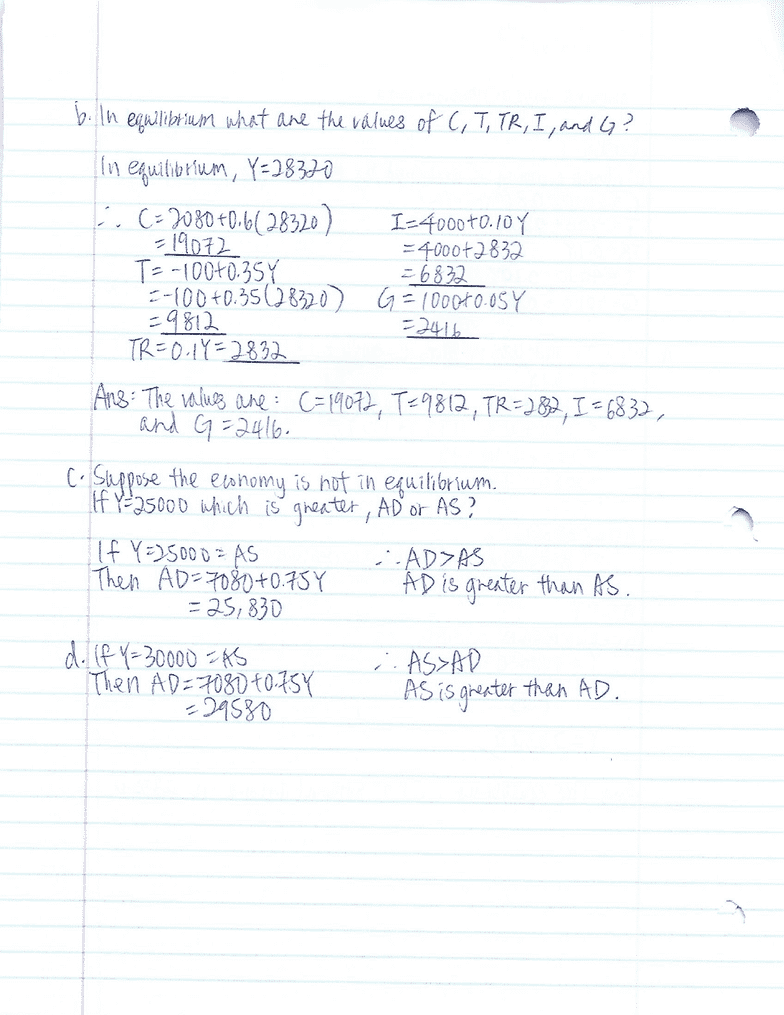 b. In equilibrium what are the values of C, T, TR, I, and G?
In equilibrium, Y=28320
∴ C=2080+0.6(28320)
=19072
T=-100+0.35Y
=-100+0.35(28320)
=9812
TR=0.1Y=2832
I=4000+0.10Y
=4000+2832
=6832
G=1000+0.05Y
=2416
Ans: The values are: C=19072, T=9812, TR=2832, I=6832,
and G=2416.
C. Suppose the economy is not in equilibrium.
If Y=25000 which is greater, AD or AS?
If Y=25000=AS
Then AD=7080+0.75Y
=25,830
∴ AD>AS
AD is greater than AS.
d. If Y=30000=AS
Then AD=7080+0.75Y
=29580
∴ AS>AD
AS is greater than AD.